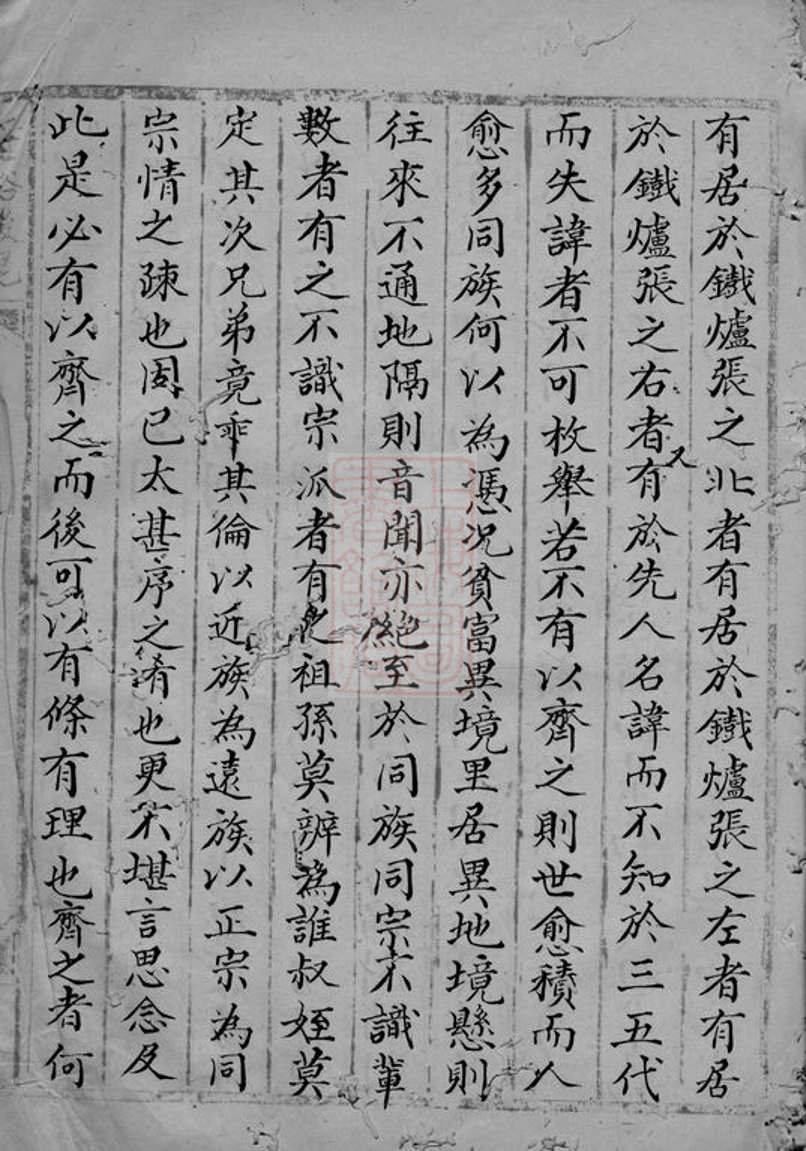 有居於鐵爐張之北者有居於鐵爐張之左者有居
於鐵爐張之右者又有於先人名諱而不知於三五代
而失諱者不可枚舉若不有以齊之則世愈積而人
愈多同族何以為憑况貧富異境里居異地境懸則
往來不通地隔則音聞亦絕至於同族同宗不識輩
數者有之不識宗派者有之祖孫莫辨為誰叔姪莫
定其次兄弟竟乖其倫以近族為遠族以正宗為同
宗情之踈也固已太甚序之淆也更不堪言思念及
此是必有以齊之而後可以有條有理也齊之者何